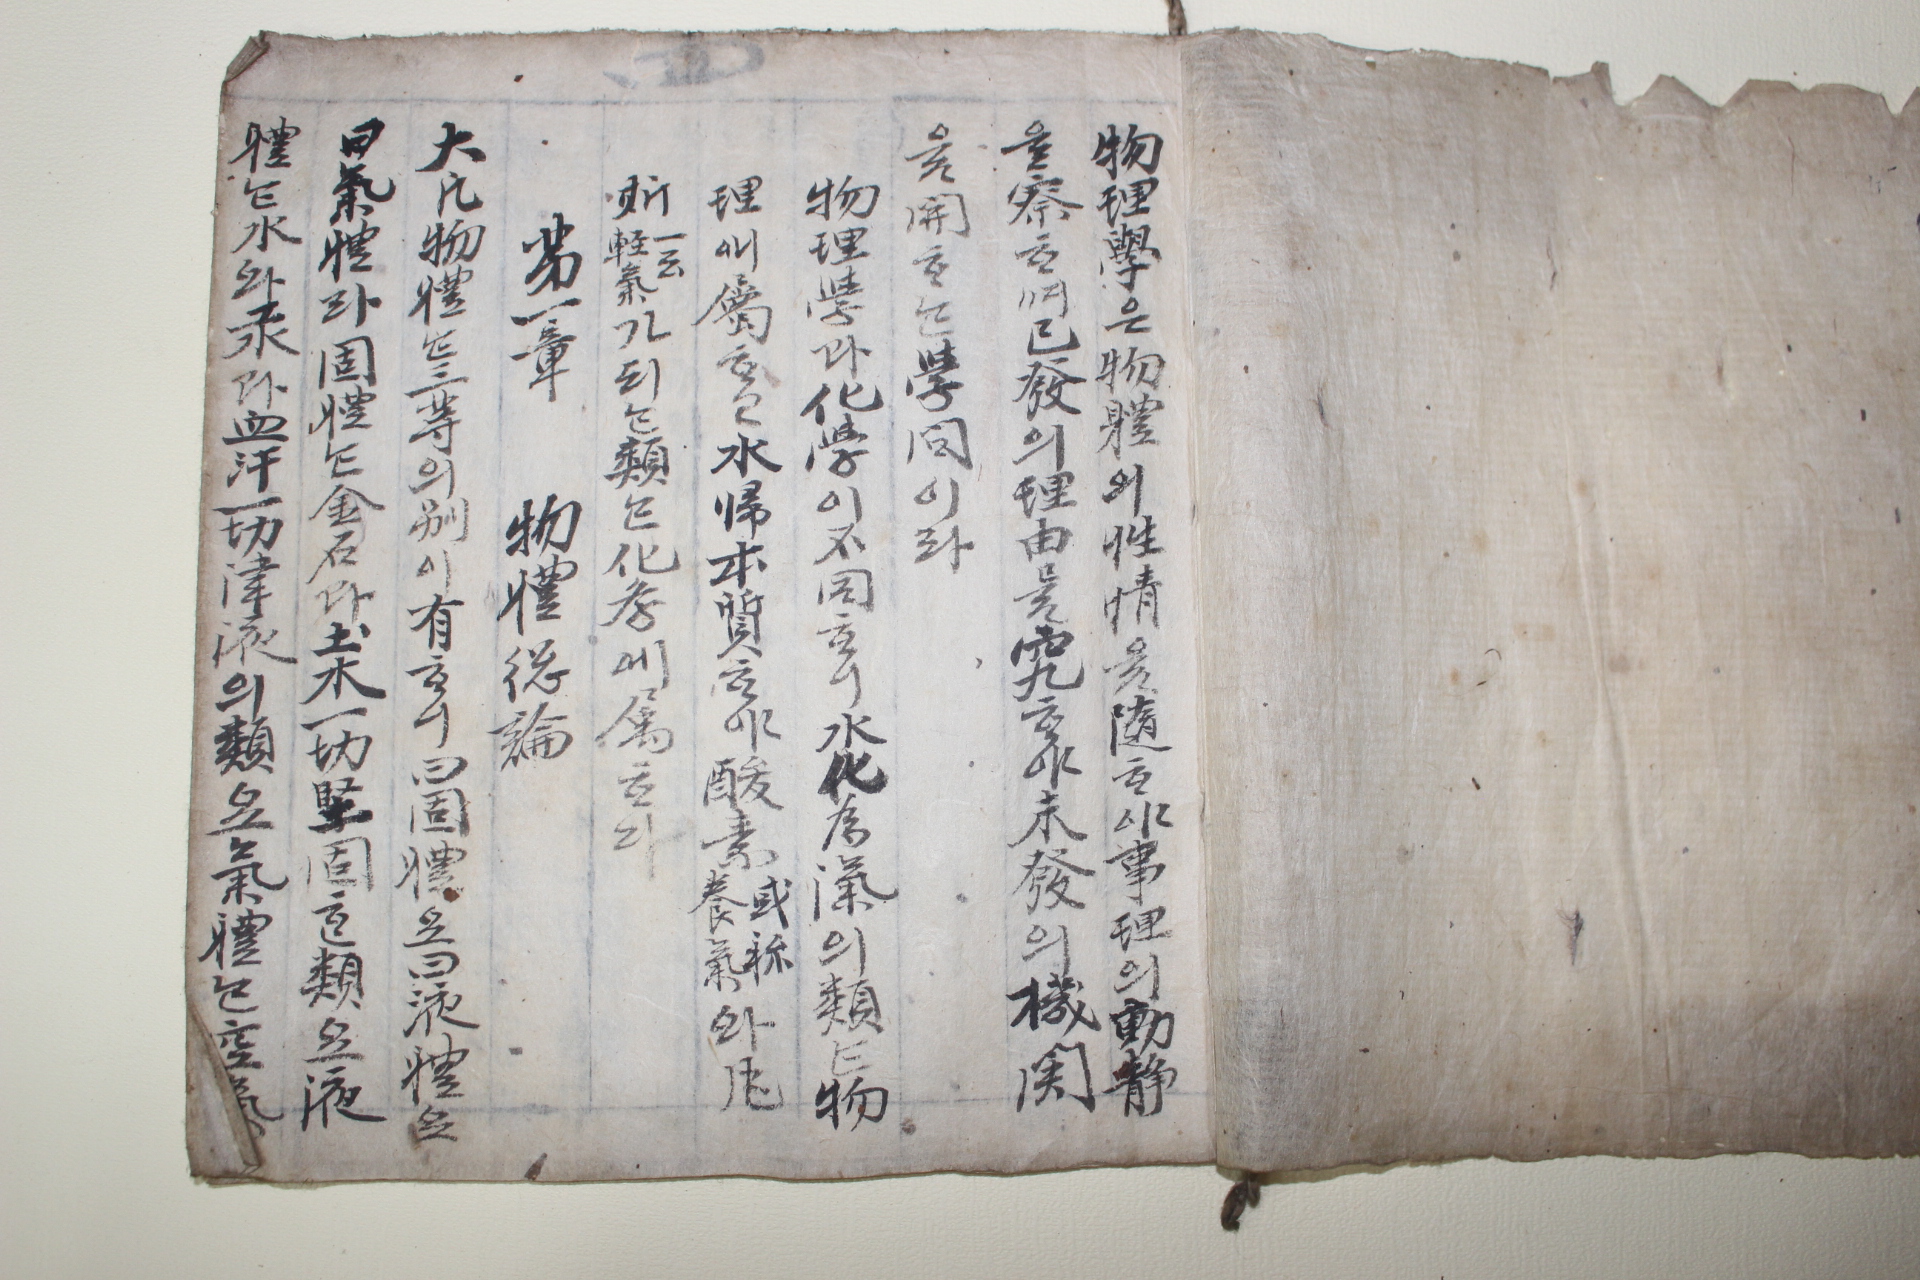 物理學은物體의性情을隨ᄒᆞ야事理의動靜
을察ᄒᆞ며已發의理由를究ᄒᆞ야未發의機関
을開ᄒᆞᄂᆞᆫ學問이라
物理學과化學이不同ᄒᆞ니水化為汽의類ᄂᆞᆫ物
理에屬ᄒᆞ고水帰本質ᄒᆞ야酸素或称養氣와水
素一云軽氣가되ᄂᆞᆫ類ᄂᆞᆫ化学에属ᄒᆞ라
第一章 物體總論
大凡物體ᄂᆞᆫ三等의別이有ᄒᆞ니曰固體오曰液體오
曰氣體라固體ᄂᆞᆫ金石과土木一切堅固ᄒᆞᆫ類오液
體ᄂᆞᆫ水와汞과血汗一切津液의類오氣體ᄂᆞᆫ空氣